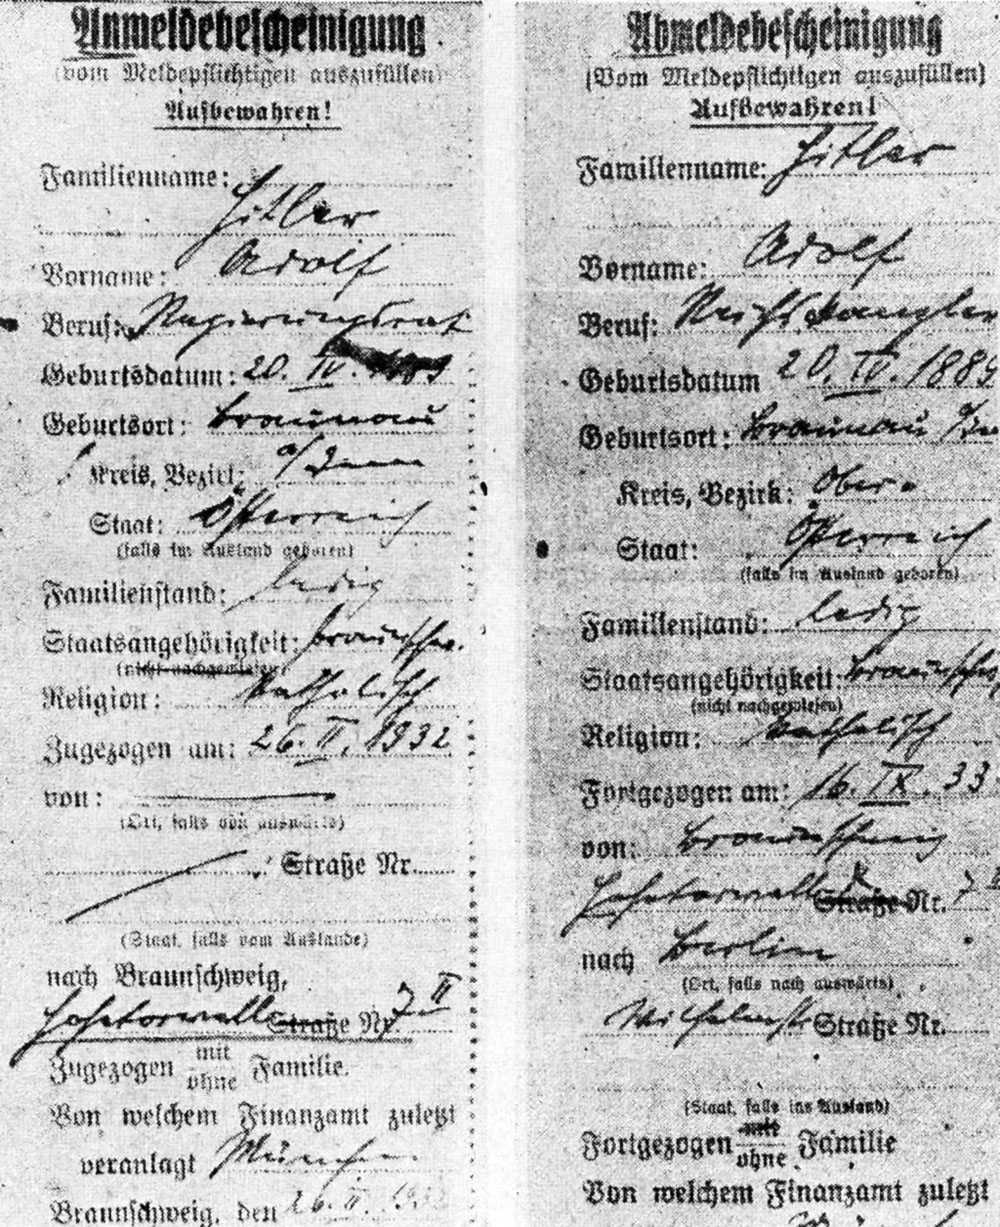 Anmeldebescheinigung
(vom Meldepflichtigen auszufüllen)
Aufbewahren!
Familienname:
Hitler
Vorname: Adolf
Beruf: Regierungsrat
Geburtsdatum: 20. IV. 1889
Geburtsort: Braunau
Kreis, Bezirk: a/Inn
Staat: Österreich
(falls im Ausland geboren)
Familienstand: ledig
Staatsangehörigkeit: braunschw.
(nicht nachgewiesen)
Religion: katholisch
Zugezogen am: 26. II. 1932
von:
(Ort, falls von auswärts)
Straße Nr.
(Staat, falls vom Auslande)
nach Braunschweig,
Hohetorwall Straße Nr. 7 II
Zugezogen mit
ohne Familie.
Von welchem Finanzamt zuletzt
veranlagt München
Braunschweig, den 26. II. 1932
Abmeldebescheinigung
(Vom Meldepflichtigen auszufüllen)
Aufbewahren!
Familienname: Hitler
Vorname: Adolf
Beruf: Reichskanzler
Geburtsdatum 20. IV. 1889
Geburtsort: Braunau a/Inn
Kreis, Bezirk: Ober-
Staat: Österreich
(falls im Ausland geboren)
Familienstand: ledig
Staatsangehörigkeit: braunschw.
(nicht nachgewiesen)
Religion: katholisch
Fortgezogen am: 16. IX. 33
von: Braunschweig
Hohetorwall Straße Nr. 7 II
nach Berlin
(Ort, falls nach auswärts)
Wilhelmstr Straße Nr.
(Staat, falls ins Ausland)
Fortgezogen mit
ohne Familie
Von welchem Finanzamt zuletzt